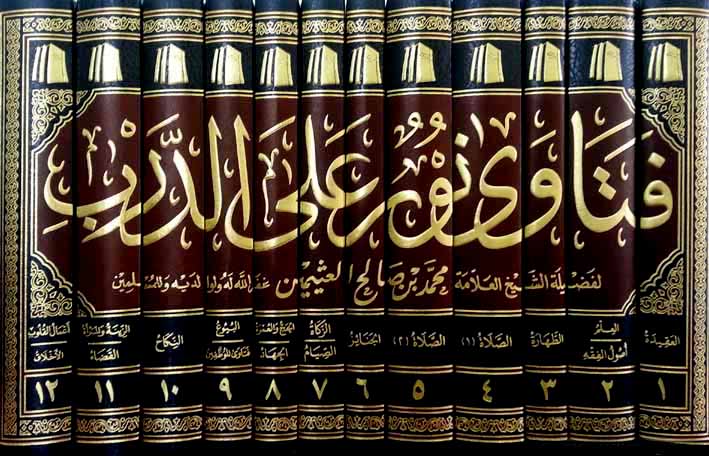 فَتَاوَى نُورٌ عَلَى الدَّرْبِ
لفَضِيلَة الشَّيخ العَلَّامَة محمَّد بْن صَالِح العثَيمين غفَر اللهُ لَهُ ولوالدَيْه وَللمُسْلِمِين
العَقِيدَة
العِلم
أصُول الفِقه
الطَّهَارَة
الصَّلَاة (١)
الصَّلَاة (٢)
الجَنَائِز
الزَّكَاة
الصِّيَام
الحَجّ وَالعُمْرَة
الجهَاد
البُيُوع
فتاوى الموظفين
النِّكَاح
القَضَاء
أعْمَال القُلُوب
الأخْلَاق
١ ٢ ٣ ٤ ٥ ٦ ٧ ٨ ٩ ١٠ ١١ ١٢